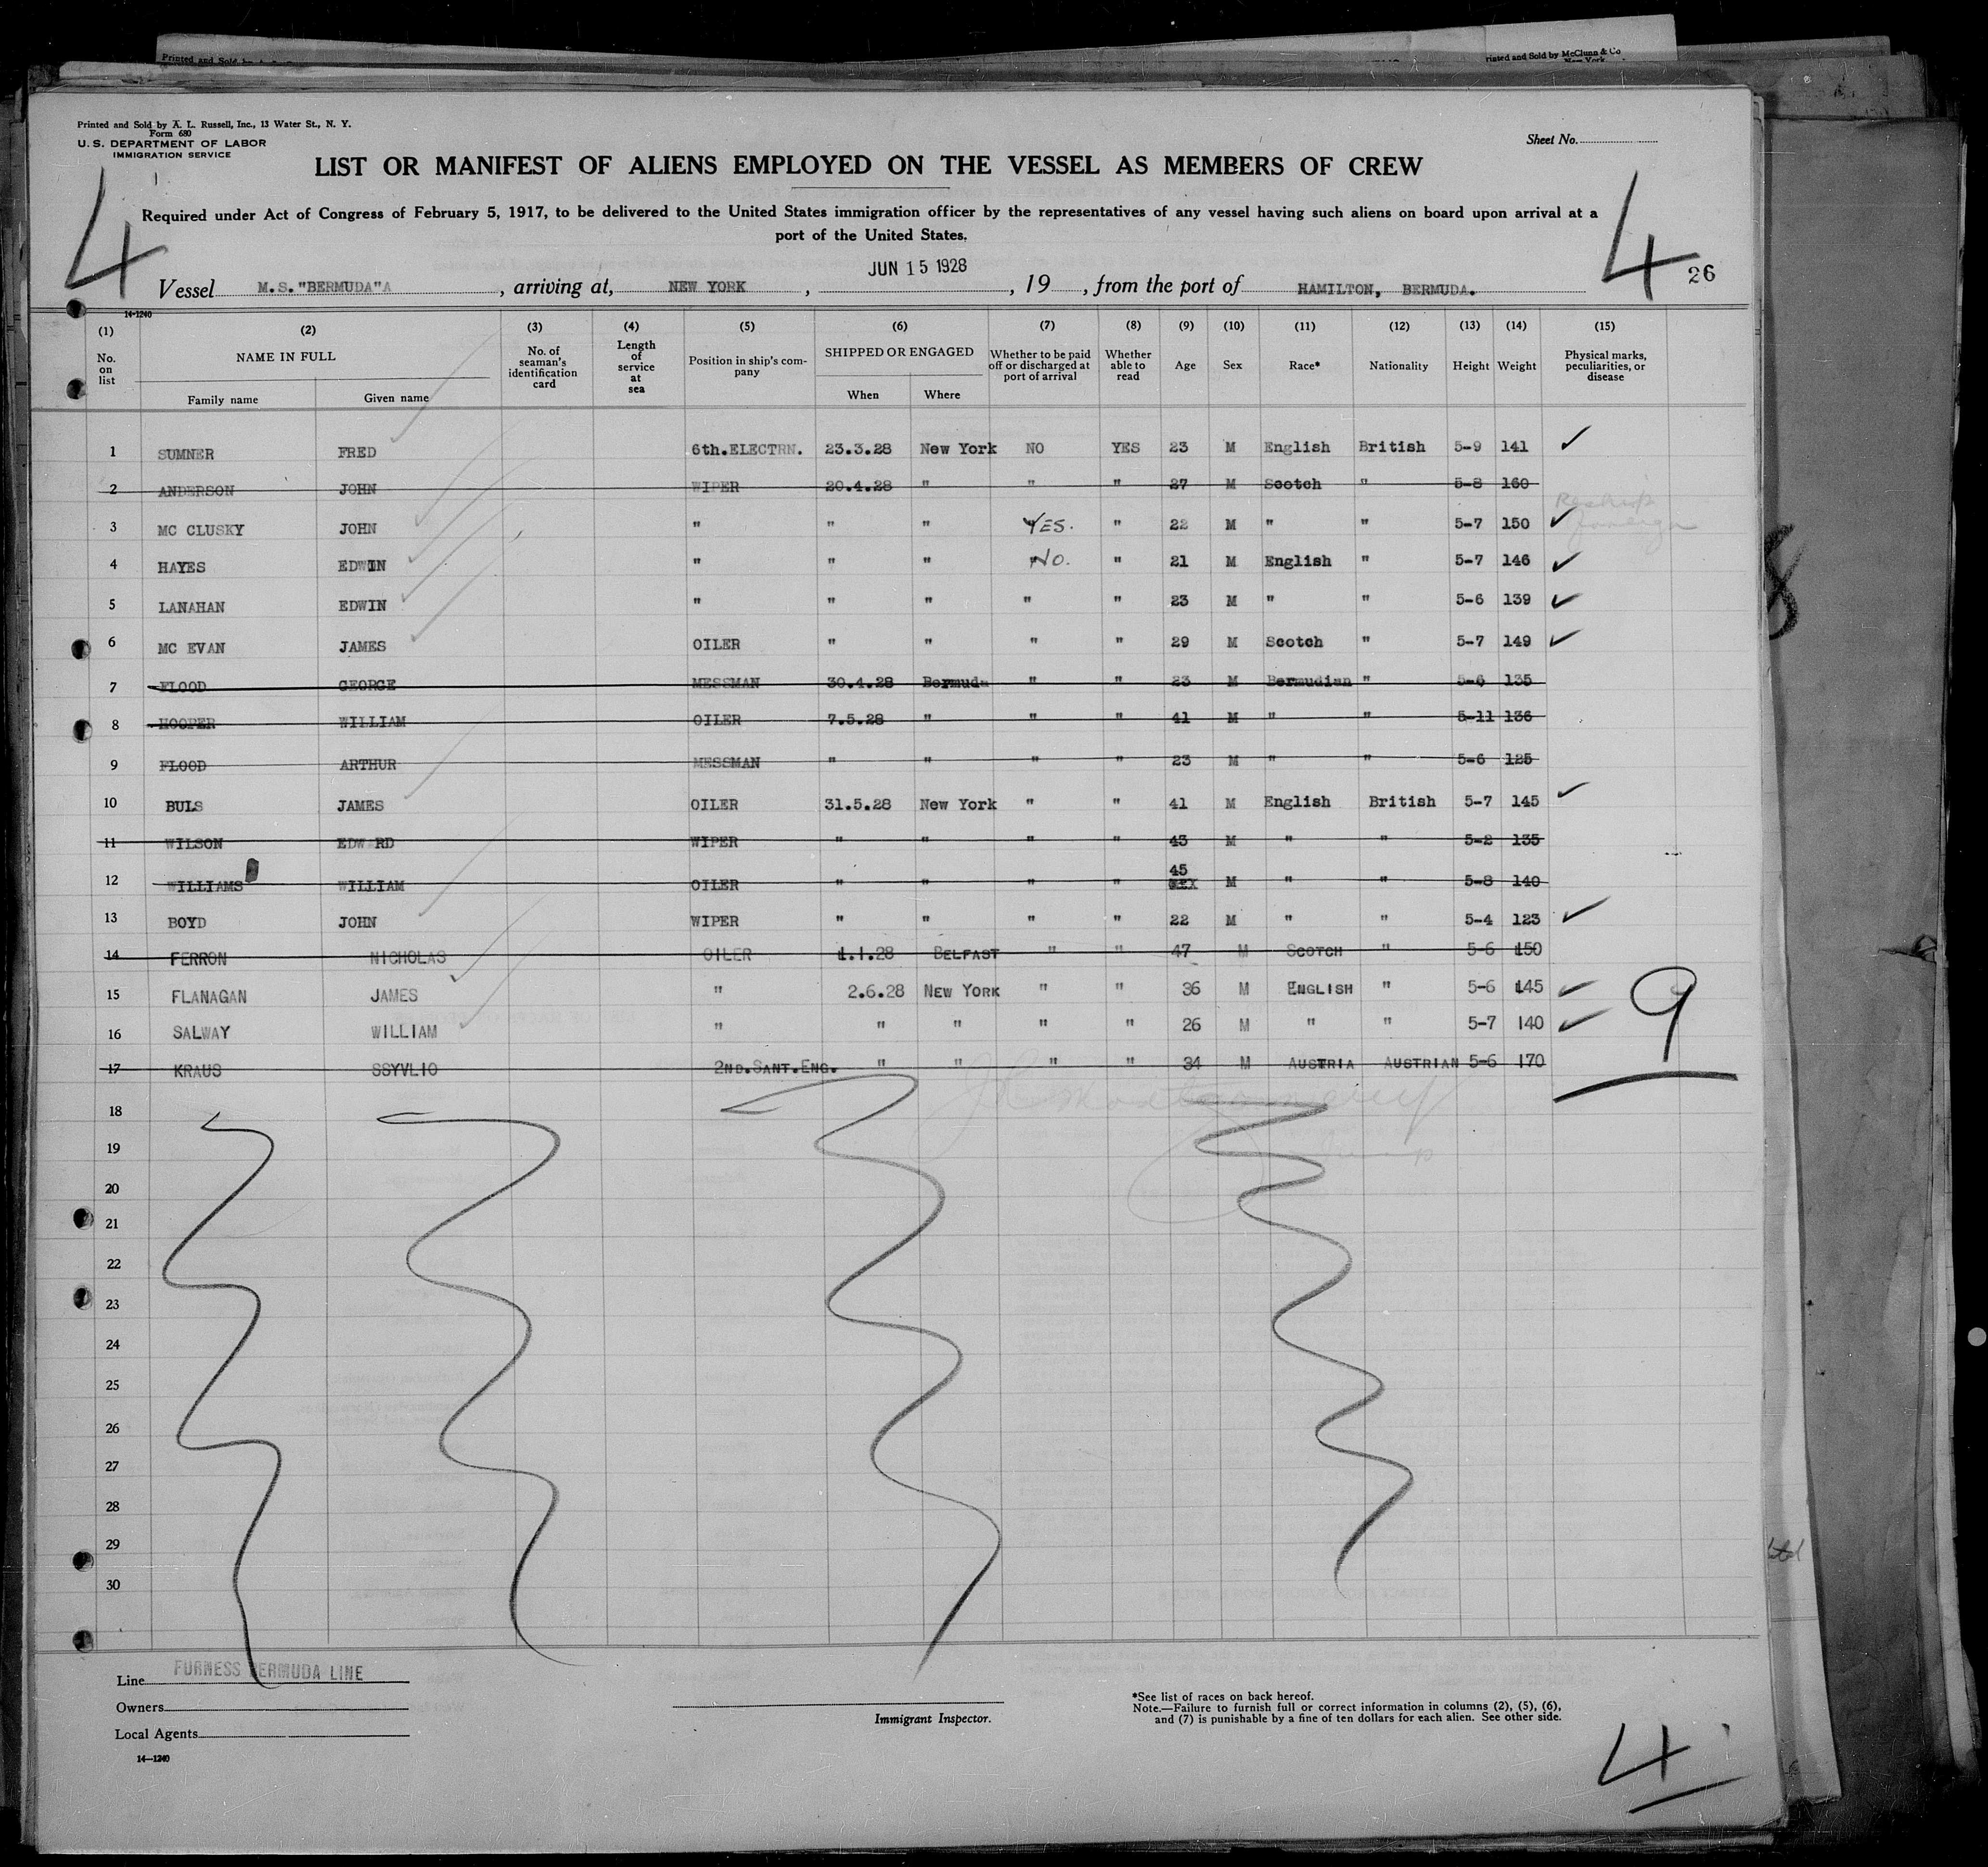 Printed and Sold by
rinted and Sold by McClunn & Co
New York
Printed and Sold by A. L. Russell, Inc., 13 Water St., N. Y.
Form 680
U. S. DEPARTMENT OF LABOR
IMMIGRATION SERVICE
Sheet No.
LIST OR MANIFEST OF ALIENS EMPLOYED ON THE VESSEL AS MEMBERS OF CREW
Required under Act of Congress of February 5, 1917, to be delivered to the United States immigration officer by the representatives of any vessel having such aliens on board upon arrival at a
port of the United States.
4 4
JUN 15 1928
Vessel M.S."BERMUDA"A , arriving at, NEW YORK , , 19 , from the port of HAMILTON, BERMUDA. 26
14-1240
(1) (2) (3) (4) (5) (6) (7) (8) (9) (10) (11) (12) (13) (14) (15)
No. on list NAME IN FULL Family name Given name No. of seaman's identification card Length of service at sea Position in ship's company SHIPPED OR ENGAGED When Where Whether to be paid off or discharged at port of arrival Whether able to read Age Sex Race* Nationality Height Weight Physical marks, peculiarities, or disease
1 SUMNER FRED 6th.ELECTRN. 23.3.28 New York NO YES 23 M English British 5-9 141 ✓
2 ANDERSON JOHN WIPER 20.4.28 " " " 27 M Scotch " 5-8 160
3 MC CLUSKY JOHN " " " YES. " 22 M " " 5-7 150 ✓ Reship foreign
4 HAYES EDWIN " " " No. " 21 M English " 5-7 146 ✓
5 LANAHAN EDWIN " " " " " 23 M " " 5-6 139 ✓
6 MC EVAN JAMES OILER " " " " 29 M Scotch " 5-7 149 ✓
7 FLOOD GEORGE MESSMAN 30.4.28 Bermuda " " 23 M Bermudian " 5-6 135
8 HOOPER WILLIAM OILER 7.5.28 " " " 41 M " " 5-11 136
9 FLOOD ARTHUR MESSMAN " " " " 23 M " " 5-6 125
10 BULS JAMES OILER 31.5.28 New York " " 41 M English British 5-7 145 ✓
11 WILSON EDWARD WIPER " " " " 43 M " " 5-2 135
12 WILLIAMS WILLIAM OILER " " " " 45 M " " 5-8 140
13 BOYD JOHN WIPER " " " " 22 M " " 5-4 123 ✓
14 FERRON NICHOLAS OILER 1.1.28 BELFAST " " 47 M SCOTCH " 5-6 150
15 FLANAGAN JAMES " 2.6.28 NEW YORK " " 36 M ENGLISH " 5-6 145 ✓ 9
16 SALWAY WILLIAM " " " " " 26 M " " 5-7 140 ✓
17 KRAUS SSYVLIO 2ND.SANT.ENG. " " " " 34 M AUSTRIA AUSTRIAN 5-6 170
18
19
20
21
22
23
24
25
26
27
28
29
30
Line FURNESS BERMUDA LINE
Owners
Local Agents
14-1240
Immigrant Inspector.
*See list of races on back hereof.
Note.—Failure to furnish full or correct information in columns (2), (5), (6),
and (7) is punishable by a fine of ten dollars for each alien. See other side.
4
8